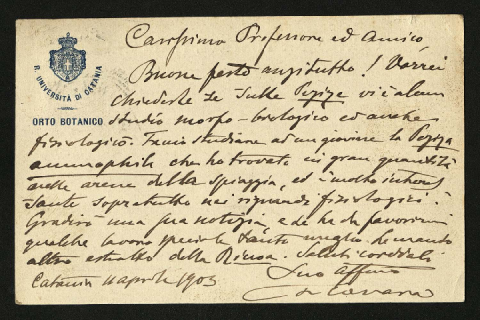 R. UNIVERSITÀ DI CATANIA
ORTO BOTANICO
Carissimo Professore ed Amico
Buone feste anzitutto! Vorrei
chiederle se sulle Pezize vi è alcun
studio morfo-biologico ed anche
fisiologico. Faccio studiare ad un giovine la Peziza
ammophila che ho trovata in gran quantità
nelle arene della spiaggia, ed è molto interes
sante sopratutto nei riguardi fisiologici.
Gradirò una sua notizia, e se ha da favorirmi
qualche lavoro speciale tanto meglio. Le mando
altro estratto della Ricerca. Saluti cordiali
Catania 11 aprile 1903
Suo Affmo
Cavara